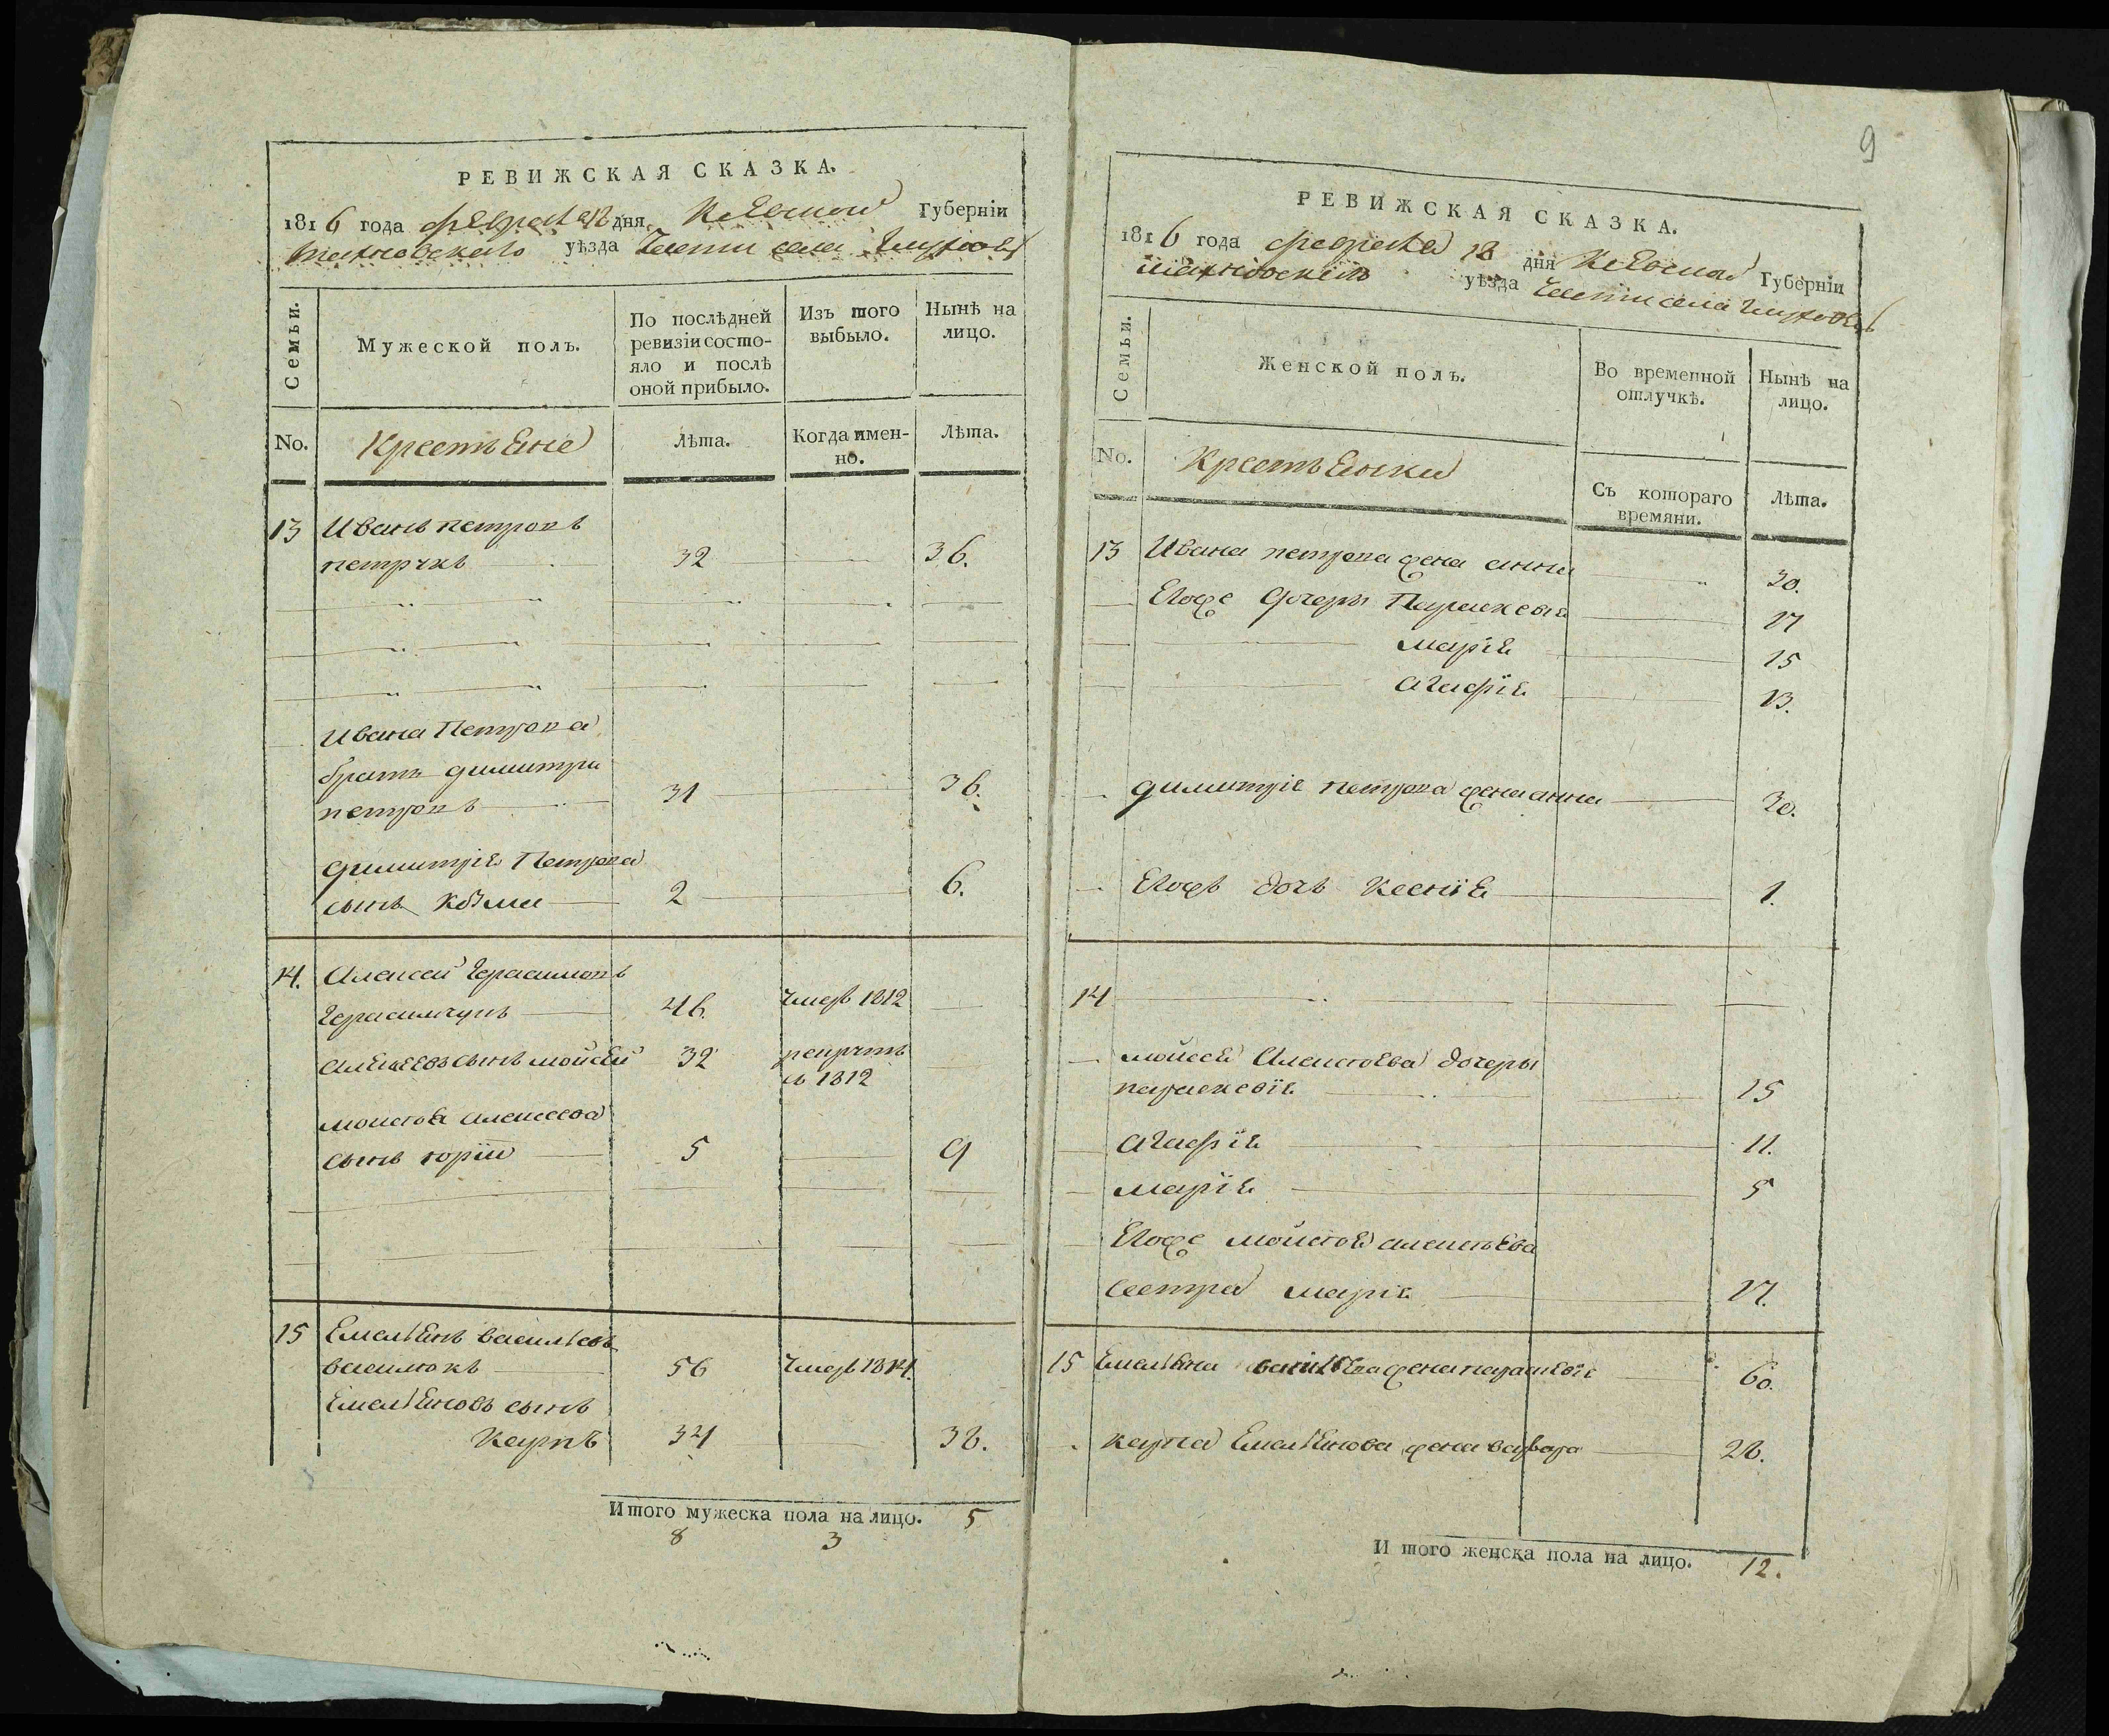 РЕВИЖСКАЯ СКАЗКА.
1816 года февраля 18 дня Киевской Губерніи
Махновскаго уѣзда Части села
Семьи.
Мужеской полъ.
По послѣдней ревизіи состо-
яло и послѣ
оной прибыло.
Изъ того
выбыло.
Нынѣ на
лицо.
No.
Крестяне
Лѣта.
Когда имен-
но.
Лѣта.
13 Иванъ петровъ
32 36.
Ивана Петрова
братъ димитри
петровъ 31 36.
димитріе Петрова
сынъ Козма 2 6.
14. Алексей Герасимовъ
Герасимчукъ 46. Умеръ 1812
Алексеевъ сынъ мойсей 32 рекрутъ
въ 1812
мойсея алексеева
сынъ юрій 5 9
15 Емельянъ васильевъ
василюкъ 56 Умеръ 1814.
Емельяновъ сынъ
Карпъ 34 38.
Итого мужеска пола на лицо. 5
8 3
9
РЕВИЖСКАЯ СКАЗКА.
1816 года февраля 18 дня Киевской Губерніи
махновскаго уѣзда Части села
Семьи.
Женской полъ.
Во временной
отлучкѣ.
Нынѣ на
лицо.
No.
Крестянки
Съ котораго
времяни.
Лѣта.
13 Ивана петрова жена анна 30.
Егоже дочеры Параскевия 17
марія 15
агафія 13.
димитріе петрова жена анна 30.
Егожъ дочъ ксенія 1.
14
мойсея Алексеева дочеры
параскевія 15
агафія 11.
марія 5
Егоже мойсея алексеева
сестра марія 17.
15 Емельяна васильева жена 60.
карпа Емельянова жена варвара 28.
Итого женска пола на лицо. 12.